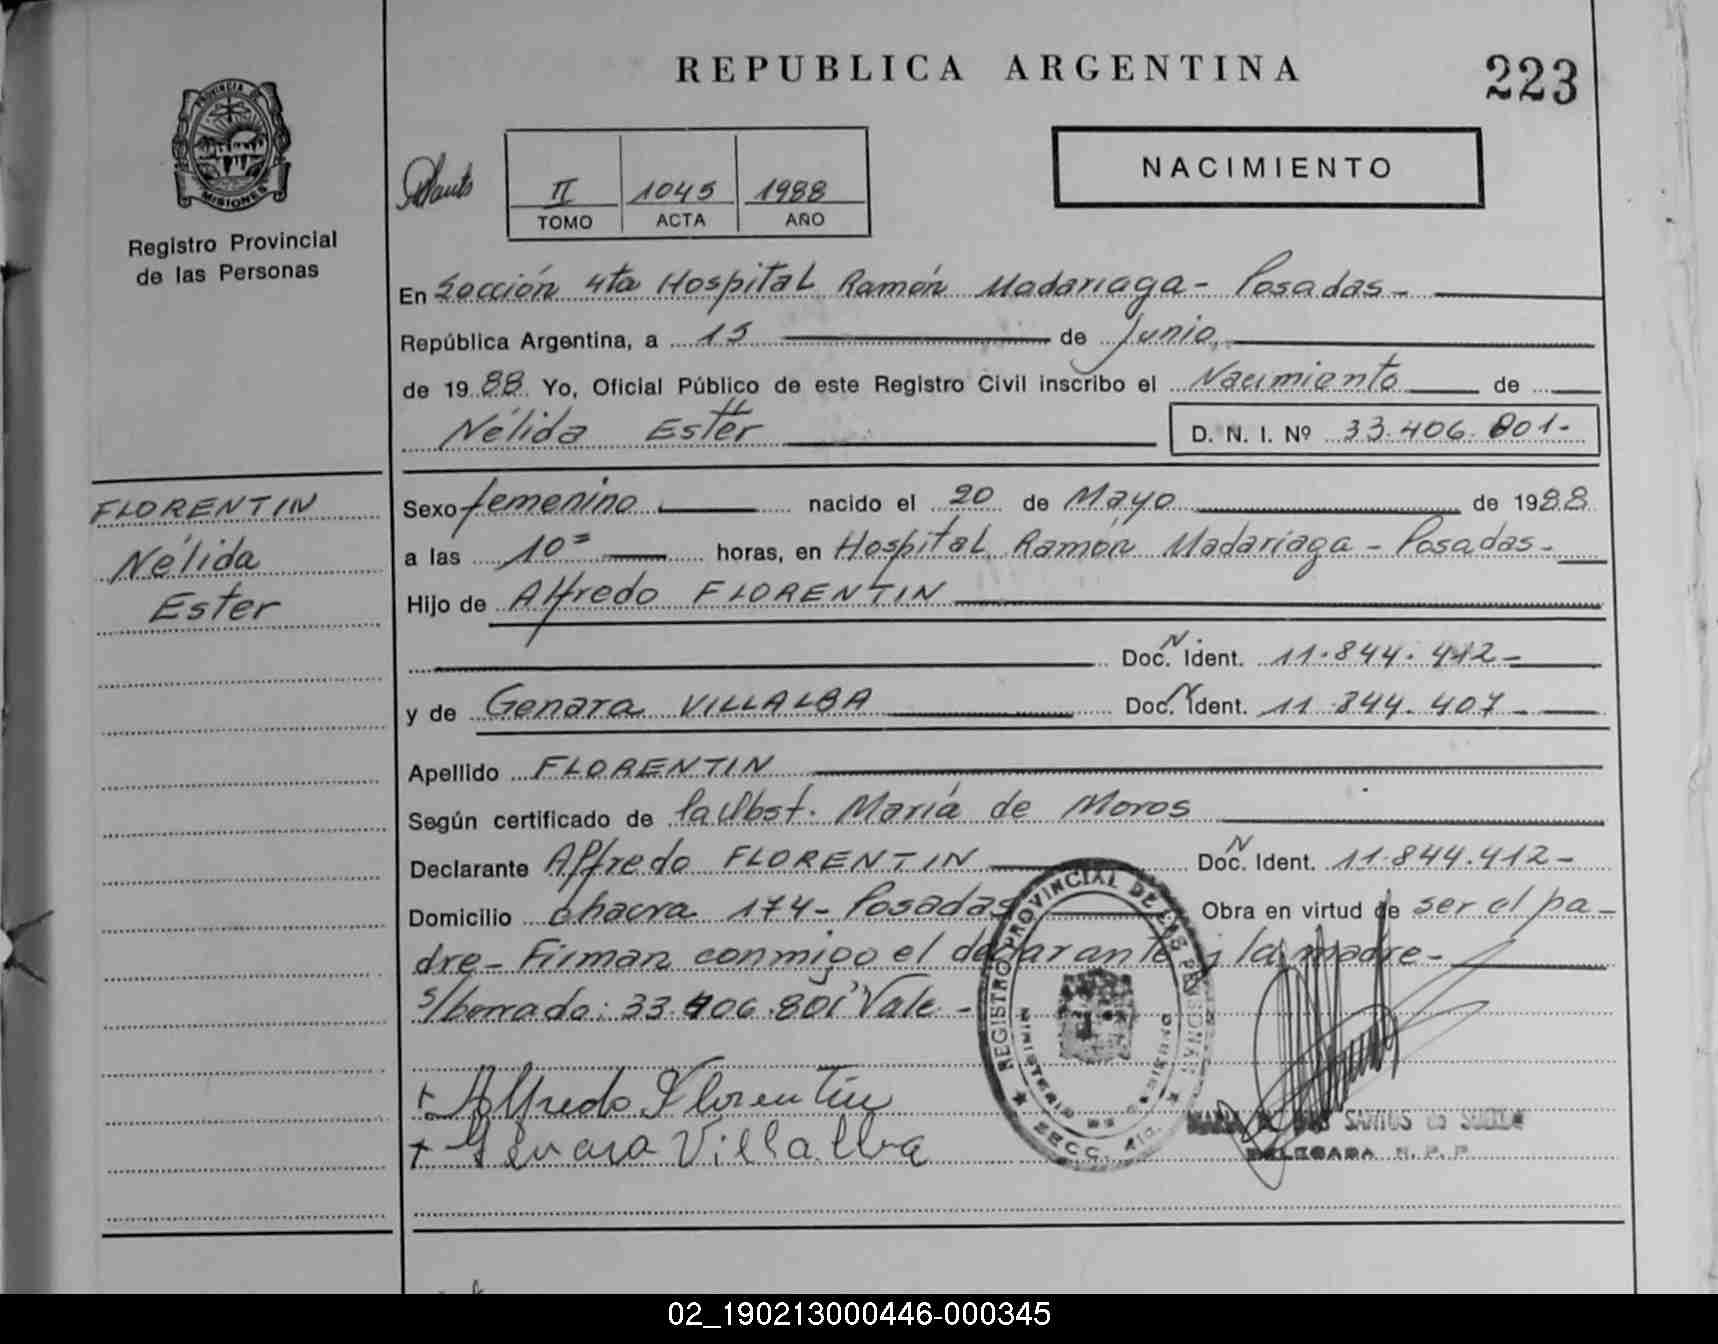 REPUBLICA ARGENTINA
223
PROVINCIA DE
MISIONES
Registro Provincial
de las Personas
II 1045 1988
TOMO ACTA AÑO
NACIMIENTO
En Sección 4ta Hospital Ramón Madariaga - Posadas -
República Argentina, a 15 de Junio
de 19 88 Yo, Oficial Público de este Registro Civil inscribo el Nacimiento de
Nélida Ester D. N. I. Nº 33.406.801-
FLORENTIN
Nélida
Ester
Sexo femenino nacido el 20 de Mayo de 1988
a las 10= horas, en Hospital Ramón Madariaga - Posadas -
Hijo de Alfredo FLORENTIN
Doc. N Ident. 11.844.412-
y de Genara VILLALBA Doc. N Ident. 11.844.407-
Apellido FLORENTIN
Según certificado de la Obst. María de Moros
Declarante Alfredo FLORENTIN Doc. N Ident. 11.844.412-
Domicilio Chacra 174 - Posadas Obra en virtud de ser el pa-
dre - Firman conmigo el declarante y la madre -
s/borrado: 33.406.801 Vale -
+ Alfredo Florentin
+ Genara Villalba
REGISTRO PROVINCIAL DE LAS PERSONAS
MINISTERIO DE GOBIERNO
SECC. 4ta.
SANTOS
DELEGADA R. P. P.
02_190213000446-000345